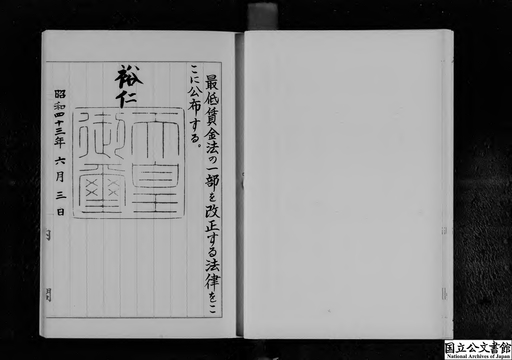 最低賃金法の一部を改正する法律をこ
こに公布する。
裕仁
天皇
御璽
昭和四十三年六月三日
国立公文書館
National Archives of Japan